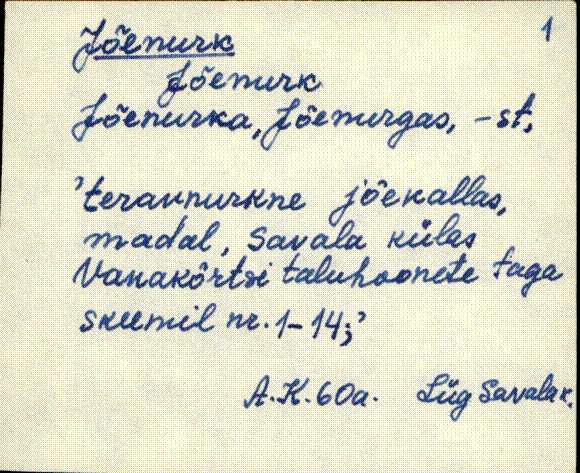 1
Jõenurk
Jõenurk
Jõenurka, Jõenurgas, -st,
'teravnurkne jõekallas,
madal, Savala külas
Vanakõrtsi taluhoonete taga
skeemil nr. 1-14;'
A.K. 60a. Lüg Savala k.